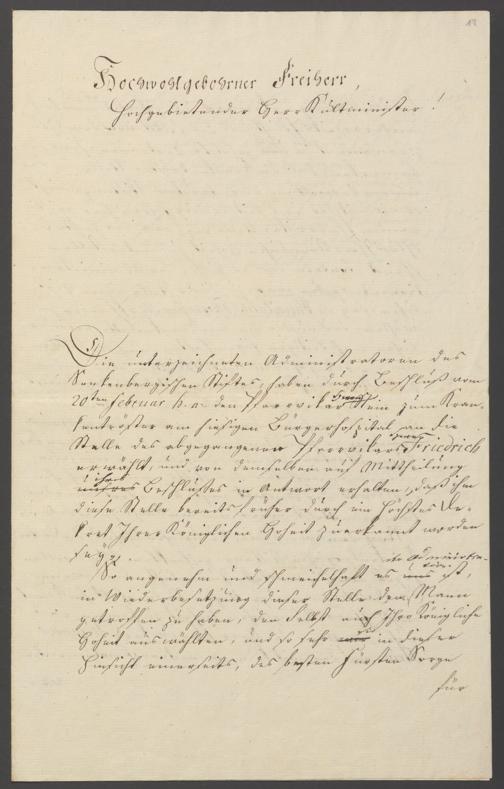 13
Hochwohlgebohrner Freiherr,
Hochgebietender Herr Kultminister!
Die unterzeichneten Administratoren des
Senkenbergischen Stiftes, haben durch Beschluß vom
20ten Februar h. a. den Pfarrvikar Stein zum Kran-
kentröster am hiesigen Bürgerhospital an die
Stelle des abgegangenen Pfarrvikars Friedrich
erwählt, und von demselben auf Mittheilung
ihres Beschlusses in Antwort erhalten, daß ihm
diese Stelle bereits früher durch ein höchstes De-
kret Ihrer Königlichen Hoheit zuerkannt worden
sey.
So angenehm und schmeichelhaft es den Administra-
toren ist,
in Wiederbesetzung dieser Stelle den Mann
getroffen zu haben, den selbst auch Ihro Königliche
Hoheit auswählten, und so sehr in dieser
Hinsicht einerseits, des besten Fürsten Sorge
für